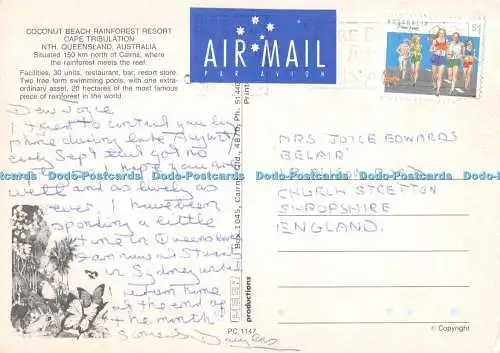 COCONUT BEACH RAINFOREST RESORT
CAPE TRIBULATION
NTH. QUEENSLAND, AUSTRALIA
Situated 150 km north of Cairns, where
the rainforest meets the reef.
Facilities, 30 units, restaurant, bar, resort store.
Two free form swimming pools, with one extra-
ordinary asset, 20 hectares of the most famous
piece of rainforest in the world.
Dear Joyce
I tried to contact you by
phone during late August
early Sept but got no
I hope you are
well and as lively as
ever. I have been
spending a little
time in Queensland
I am now at
in Sydney until
I return home
at the end of
the month
Sincerely Douglas
AIR MAIL
PAR AVION
AUSTRALIA
$1
MRS JOYCE EDWARDS
'BELAIR'
CHURCH STRETTON
SHROPSHIRE
ENGLAND.
Box 1045, Cairns, Qld., 4870, Ph. 51 440
productions
PC 1147
© Copyright
Dodo-Postcards Dodo-Postcards Dodo-Postcards Dodo-Postcards